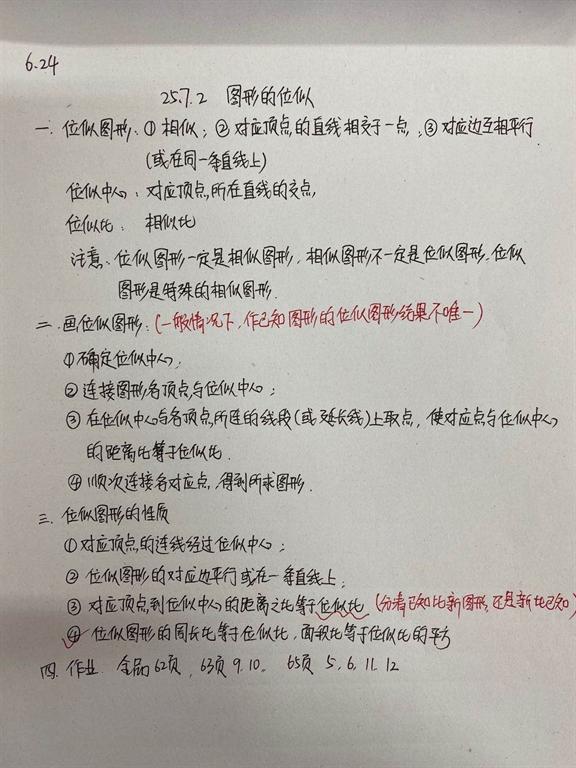 6.24
25.7.2 图形的位似
一. 位似图形: ① 相似; ② 对应顶点的直线相交于一点, ③ 对应边互相平行
(或在同一条直线上)
位似中心: 对应顶点所在直线的交点,
位似比: 相似比
注意、位似图形一定是相似图形, 相似图形不一定是位似图形. 位似
图形是特殊的相似图形.
二. 画位似图形: (一般情况下, 作已知图形的位似图形结果不唯一)
① 确定位似中心;
② 连接图形各顶点与位似中心;
③ 在位似中心与各顶点所连的线段(或延长线)上取点, 使对应点与位似中心
的距离比等于位似比.
④ 顺次连接各对应点, 得到所求图形.
三. 位似图形的性质
① 对应顶点的连线经过位似中心;
② 位似图形的对应边平行或在一条直线上;
③ 对应顶点到位似中心的距离之比等于位似比 (分清已知比新图形, 还是新比已知)
④ 位似图形的周长比等于位似比, 面积比等于位似比的平方
四. 作业. 全品62页, 63页 9.10. 65页 5.6.11.12